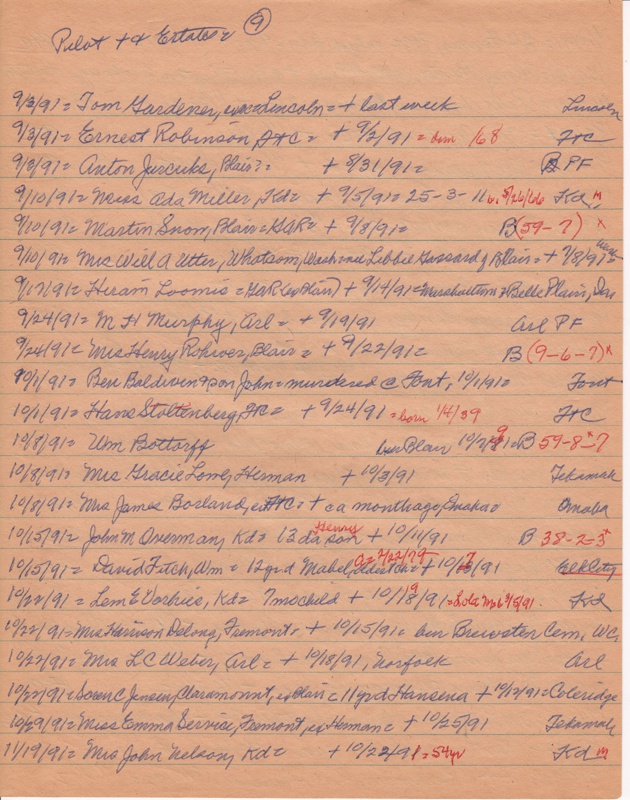 Pilot + & Estates = 9
9/3/91 = Tom Gardener, ex = Lincoln = + last week Lincoln
9/3/91 = Ernest Robinson, FtC = + 9/2/91 = born /68 FtC
9/3/91 = Anton Jurcuks, Blair? = + 8/31/91 = B PF
9/10/91 = Miss Ada Miller, Kd = + 9/5/91 = 25-3-11 b. 5/26/66 Kd m
9/10/91 = Martin Snow, Blair = GAR = + 9/8/91 = B (59-7) x
9/10/91 = Mrs Will A Utter, Whatsom, Wash nee Libbie Gossard of Blair = + 7/8/91
9/17/91 = Hiram Loomis = GAR (ex Blair) + 9/14/91 = Belle Plain,
9/24/91 = M H Murphy, Arl = + 9/19/91 Arl PF
9/24/91 = Mrs Henry Rohwer, Blair = + 9/22/91 = B (9-6-7) x
10/1/91 = Ben Baldwin & son John = murdered @ Font, 10/1/91 = Font
10/1/91 = Hans Stoltenberg, FtC = + 9/24/91 = born 1/4/39 FtC
10/8/91 = Wm Bottorff bur Blair 10/2/91 = B 59-8-7 x
10/8/91 = Mrs Gracie Lowe, Herman + 10/3/91 Tekamah
10/8/91 = Mrs James Borland, ex FtC = + ca month ago, Omaha Omaha
10/15/91 = John M. Overman, Kd = 12 da son Henry + 10/11/91 B 38-2-3 x
10/15/91 = David Fitch, Wm = 12 yr d Mabel, + 10/17/91 Elk City
10/22/91 = Lem E Vorhies, Kd = 7 mo child + 10/19/91 = Lola M b 3/5/91. Kd
10/22/91 = Mrs Harrison Delong, Fremont, + 10/15/91 = bur Brewster Cem, WC
10/22/91 = Mrs L C Weber, Arl = + 10/18/91, Norfolk Arl
10/22/91 = Soren C Jensen, Claramount, ex Blair = 11 yr d Hansena + 10/12/91 = Coleridge
10/29/91 = Miss Emma Service, Fremont, ex Herman = + 10/25/91 Tekamah
11/19/91 = Mrs John Nelson, Kd = + 10/22/91 = 54 yr Kd m